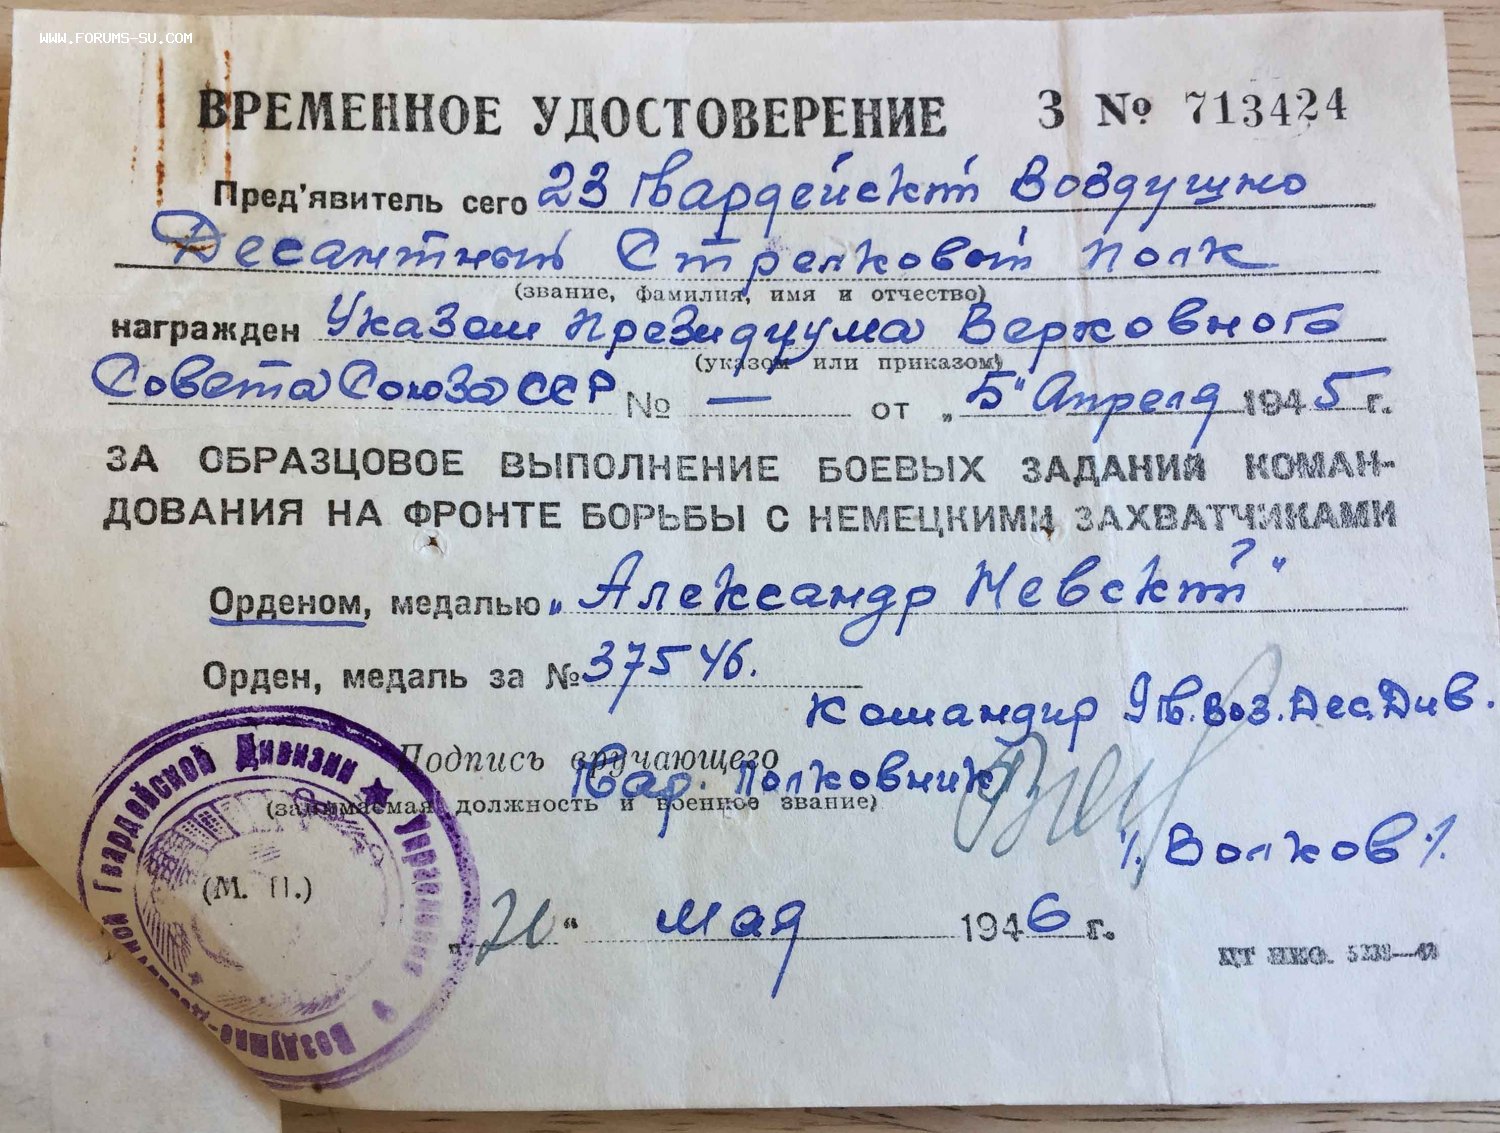 WWW.FORUMS-SU.COM
ВРЕМЕННОЕ УДОСТОВЕРЕНИЕ З № 713424
Пред'явитель сего 23 Гвардейский Воздушно
Десантный Стрелковый полк
(звание, фамилия, имя и отчество)
награжден Указом Президиума Верховного
(указом или приказом)
Совета Союза ССР № — от „5" Апреля 1945 г.
ЗА ОБРАЗЦОВОЕ ВЫПОЛНЕНИЕ БОЕВЫХ ЗАДАНИЙ КОМАН-
ДОВАНИЯ НА ФРОНТЕ БОРЬБЫ С НЕМЕЦКИМИ ЗАХВАТЧИКАМИ
Орденом, медалью „Александр Невский"
Орден, медаль за № 37546.
Командир 9 Гв. Воз. Дес. Див.
Подпись вручающего
Гвар. Полковник
(занимаемая должность и военное звание)
/. Волков /.
(М. П.)
„20“ мая 1946 г.
ЦТ НКО.
Управление Воздушно-десантной Гвардейской Дивизии